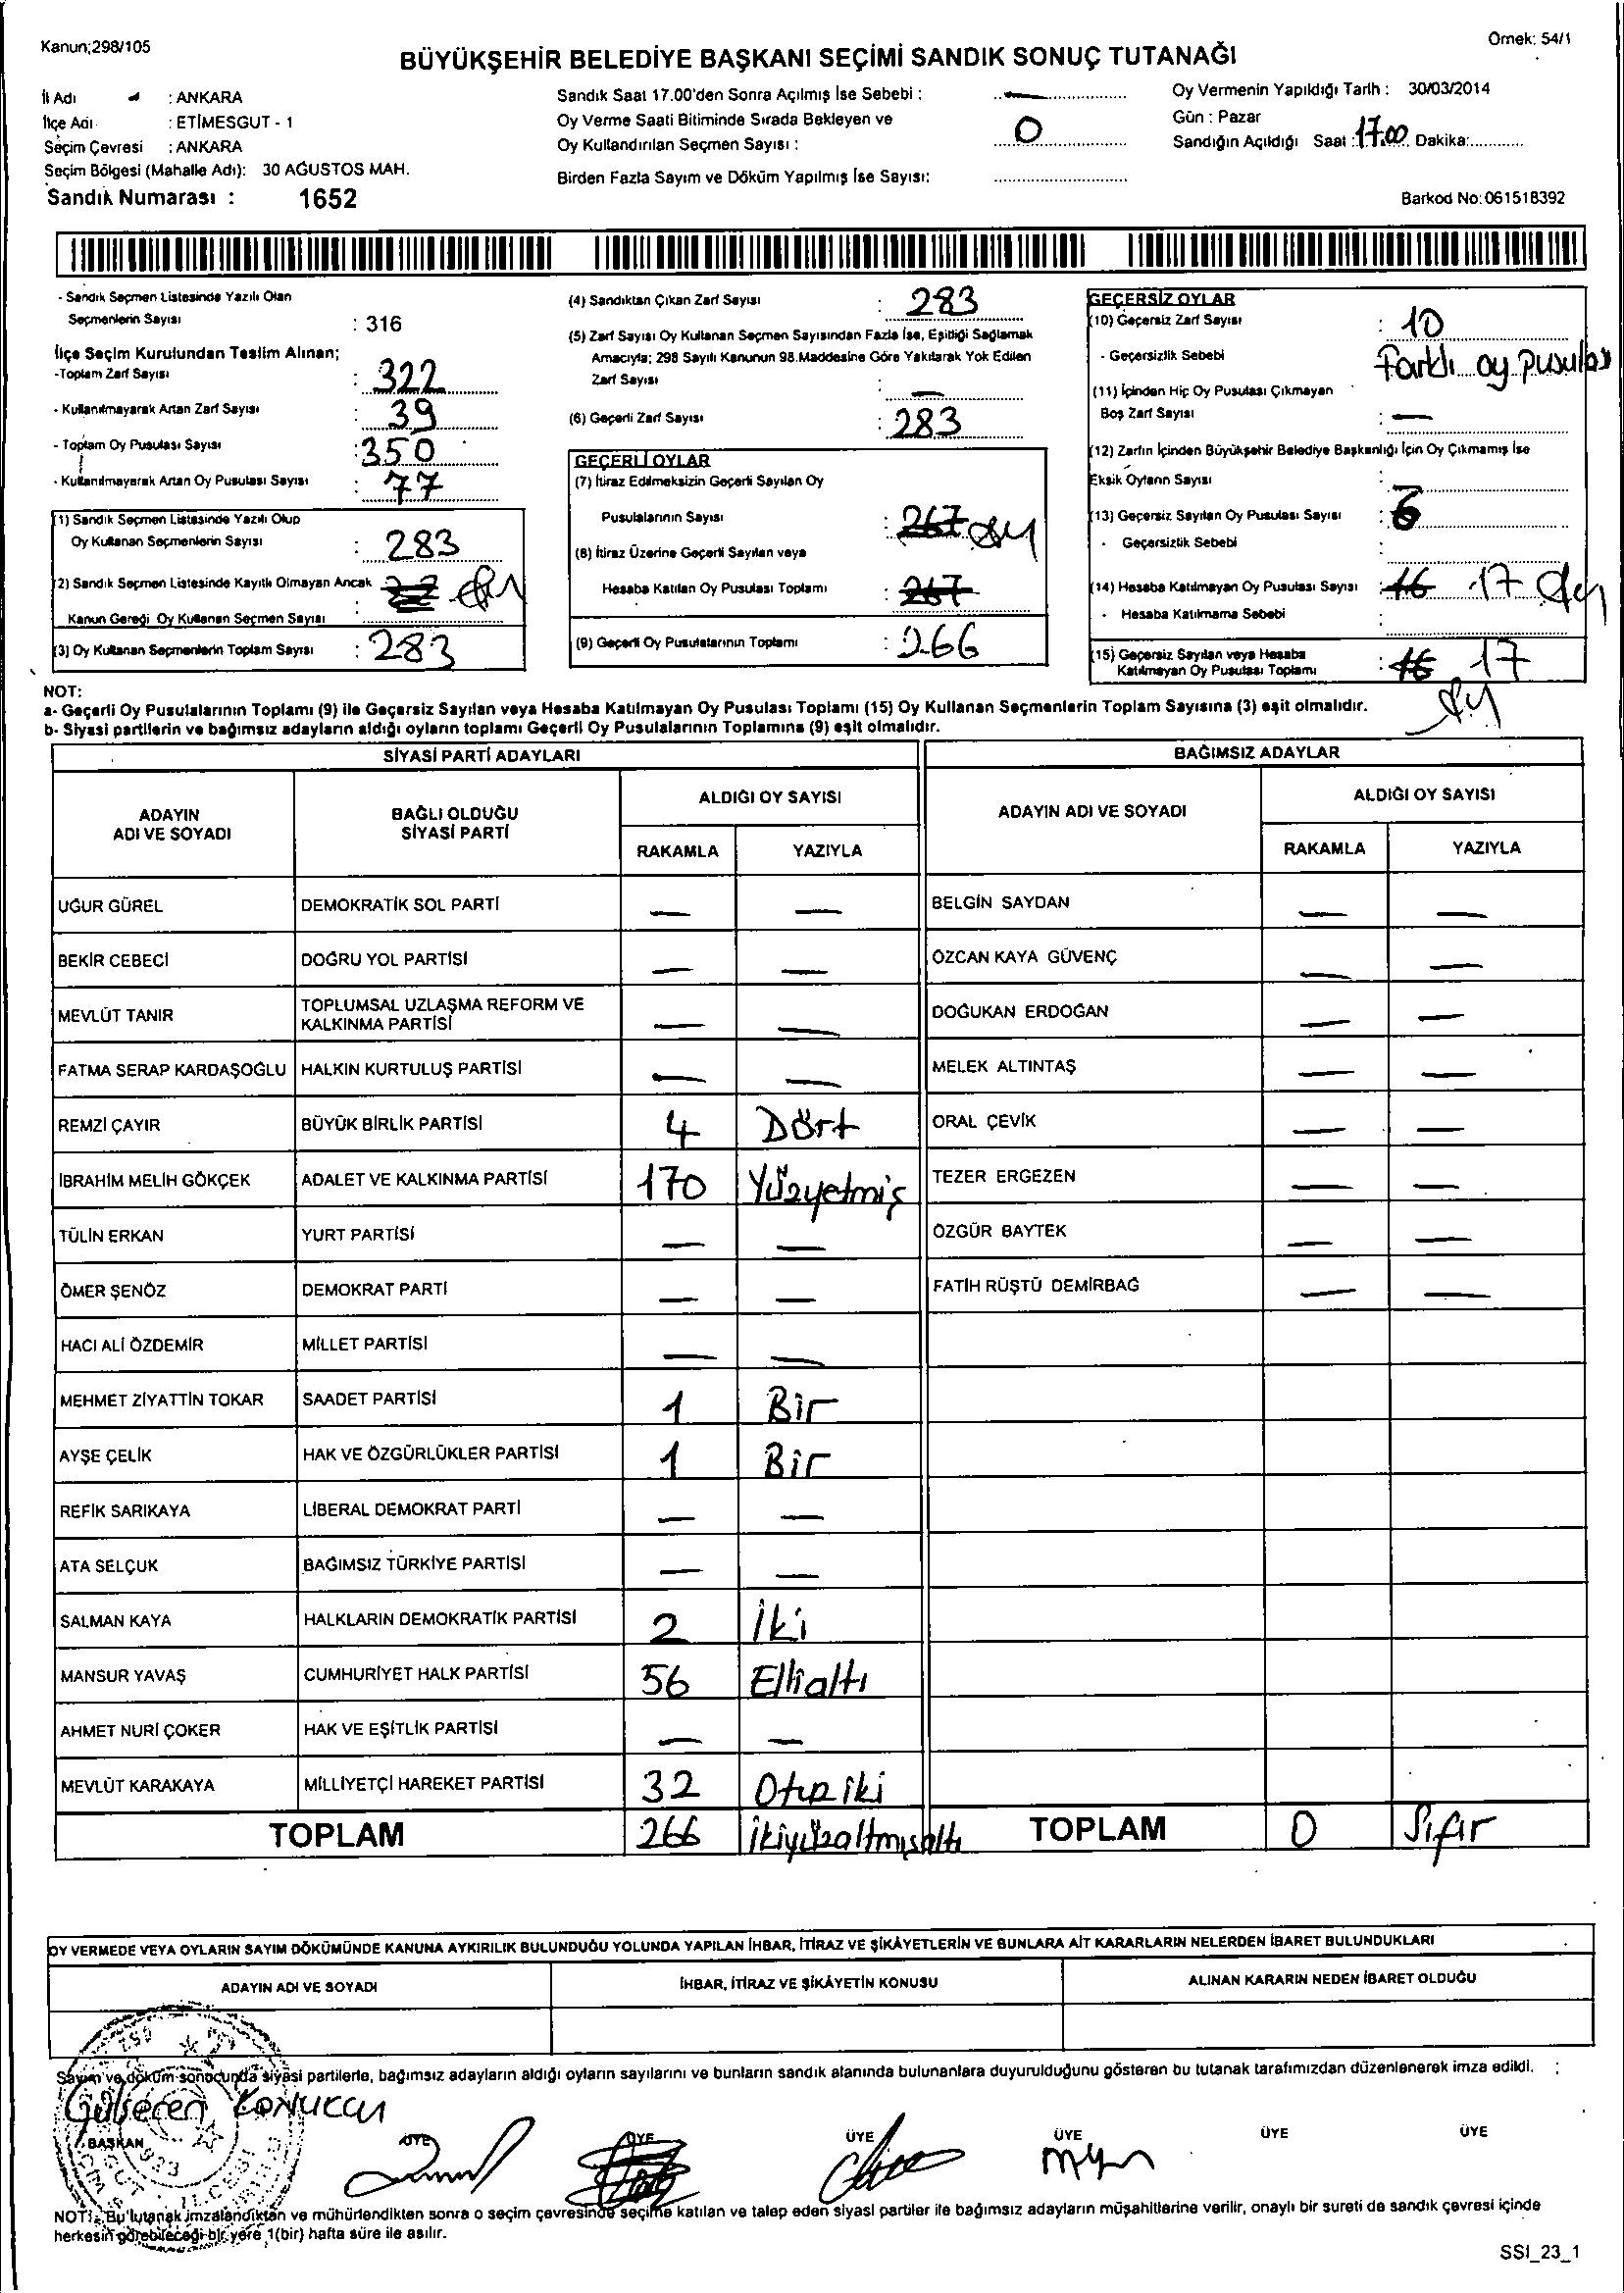 Kanun;298/105
Örnek: 54/1
BÜYÜKŞEHİR BELEDİYE BAŞKANI SEÇİMİ SANDIK SONUÇ TUTANAĞI
İl Adı : ANKARA
İlçe Adı : ETİMESGUT - 1
Seçim Çevresi : ANKARA
Seçim Bölgesi (Mahalle Adı): 30 AĞUSTOS MAH.
Sandık Numarası : 1652
Sandık Saat 17.00'den Sonra Açılmış İse Sebebi : —
Oy Verme Saati Bitiminde Sırada Bekleyen ve
Oy Kullandırılan Seçmen Sayısı : 0
Birden Fazla Sayım ve Döküm Yapılmış İse Sayısı:
Oy Vermenin Yapıldığı Tarih : 30/03/2014
Gün : Pazar
Sandığın Açıldığı Saat : 17.00 Dakika:
Barkod No:061518392
- Sandık Seçmen Listesinde Yazılı Olan
Seçmenlerin Sayısı : 316
İlçe Seçim Kurulundan Teslim Alınan;
-Toplam Zarf Sayısı : 322
- Kullanılmayarak Artan Zarf Sayısı : 39
- Toplam Oy Pusulası Sayısı : 350
- Kullanılmayarak Artan Oy Pusulası Sayısı : 77
(1) Sandık Seçmen Listesinde Yazılı Olup
Oy Kullanan Seçmenlerin Sayısı : 283
(2) Sandık Seçmen Listesinde Kayıtlı Olmayan Ancak
Kanun Gereği Oy Kullanan Seçmen Sayısı :
(3) Oy Kullanan Seçmenlerin Toplam Sayısı : 283
(4) Sandıktan Çıkan Zarf Sayısı : 283
(5) Zarf Sayısı Oy Kullanan Seçmen Sayısından Fazla İse, Eşitliği Sağlamak
Amacıyla; 298 Sayılı Kanunun 98.Maddesine Göre Yakılarak Yok Edilen
Zarf Sayısı : —
(6) Geçerli Zarf Sayısı : 283
GEÇERLİ OYLAR
(7) İtiraz Edilmeksizin Geçerli Sayılan Oy
Pusulalarının Sayısı : 267
(8) İtiraz Üzerine Geçerli Sayılan veya
Hesaba Katılan Oy Pusulası Toplamı : 267
(9) Geçerli Oy Pusulalarının Toplamı : 266
GEÇERSİZ OYLAR
(10) Geçersiz Zarf Sayısı : 10
- Geçersizlik Sebebi Farklı oy pusulası
(11) İçinden Hiç Oy Pusulası Çıkmayan
Boş Zarf Sayısı : —
(12) Zarfın İçinden Büyükşehir Belediye Başkanlığı İçin Oy Çıkmamış İse
Eksik Oyların Sayısı :
(13) Geçersiz Sayılan Oy Pusulası Sayısı : 6
- Geçersizlik Sebebi :
(14) Hesaba Katılmayan Oy Pusulası Sayısı : 16 17
- Hesaba Katılmama Sebebi :
(15) Geçersiz Sayılan veya Hesaba
Katılmayan Oy Pusulası Toplamı : 16 17
NOT:
a- Geçerli Oy Pusulalarının Toplamı (9) ile Geçersiz Sayılan veya Hesaba Katılmayan Oy Pusulası Toplamı (15) Oy Kullanan Seçmenlerin Toplam Sayısına (3) eşit olmalıdır.
b- Siyasi partilerin ve bağımsız adayların aldığı oyların toplamı Geçerli Oy Pusulalarının Toplamına (9) eşit olmalıdır.
SİYASİ PARTİ ADAYLARI BAĞIMSIZ ADAYLAR
ADAYIN ADI VE SOYADI BAĞLI OLDUĞU SİYASİ PARTİ ALDIĞI OY SAYISI ADAYIN ADI VE SOYADI ALDIĞI OY SAYISI
RAKAMLA YAZIYLA RAKAMLA YAZIYLA
UĞUR GÜREL DEMOKRATİK SOL PARTİ — — BELGİN SAYDAN — —
BEKİR CEBECİ DOĞRU YOL PARTİSİ — — ÖZCAN KAYA GÜVENÇ — —
MEVLÜT TANIR TOPLUMSAL UZLAŞMA REFORM VE KALKINMA PARTİSİ — — DOĞUKAN ERDOĞAN — —
FATMA SERAP KARDAŞOĞLU HALKIN KURTULUŞ PARTİSİ — — MELEK ALTINTAŞ — —
REMZİ ÇAYIR BÜYÜK BİRLİK PARTİSİ 4 Dört ORAL ÇEVİK — —
İBRAHİM MELİH GÖKÇEK ADALET VE KALKINMA PARTİSİ 170 Yüzyetmiş TEZER ERGEZEN — —
TÜLİN ERKAN YURT PARTİSİ — — ÖZGÜR BAYTEK — —
ÖMER ŞENÖZ DEMOKRAT PARTİ — — FATİH RÜŞTÜ DEMİRBAĞ — —
HACI ALİ ÖZDEMİR MİLLET PARTİSİ — —
MEHMET ZİYATTİN TOKAR SAADET PARTİSİ 1 Bir
AYŞE ÇELİK HAK VE ÖZGÜRLÜKLER PARTİSİ 1 Bir
REFİK SARIKAYA LİBERAL DEMOKRAT PARTİ — —
ATA SELÇUK BAĞIMSIZ TÜRKİYE PARTİSİ — —
SALMAN KAYA HALKLARIN DEMOKRATİK PARTİSİ 2 İki
MANSUR YAVAŞ CUMHURİYET HALK PARTİSİ 56 Ellialtı
AHMET NURİ ÇOKER HAK VE EŞİTLİK PARTİSİ — —
MEVLÜT KARAKAYA MİLLİYETÇİ HAREKET PARTİSİ 32 Otuziki
TOPLAM 266 ikiyüzaltmışaltı TOPLAM 0 Sıfır
OY VERMEDE VEYA OYLARIN SAYIM DÖKÜMÜNDE KANUNA AYKIRILIK BULUNDUĞU YOLUNDA YAPILAN İHBAR, İTİRAZ VE ŞİKÂYETLERİN VE BUNLARA AİT KARARLARIN NELERDEN İBARET BULUNDUKLARI
ADAYIN ADI VE SOYADI İHBAR, İTİRAZ VE ŞİKÂYETİN KONUSU ALINAN KARARIN NEDEN İBARET OLDUĞU
Sayım ve döküm sonucunda siyasi partilerle, bağımsız adayların aldığı oyların sayılarını ve bunların sandık alanında bulunanlara duyurulduğunu gösteren bu tutanak tarafımızdan düzenlenerek imza edildi.
Gülseren
BAŞKAN ÜYE ÜYE ÜYE ÜYE ÜYE ÜYE
NOT: Bu tutanak imzalandıktan ve mühürlendikten sonra o seçim çevresinde seçime katılan ve talep eden siyasi partiler ile bağımsız adayların müşahitlerine verilir, onaylı bir sureti de sandık çevresi içinde
herkesin görebileceği bir yere 1(bir) hafta süre ile asılır.
SSI_23_1